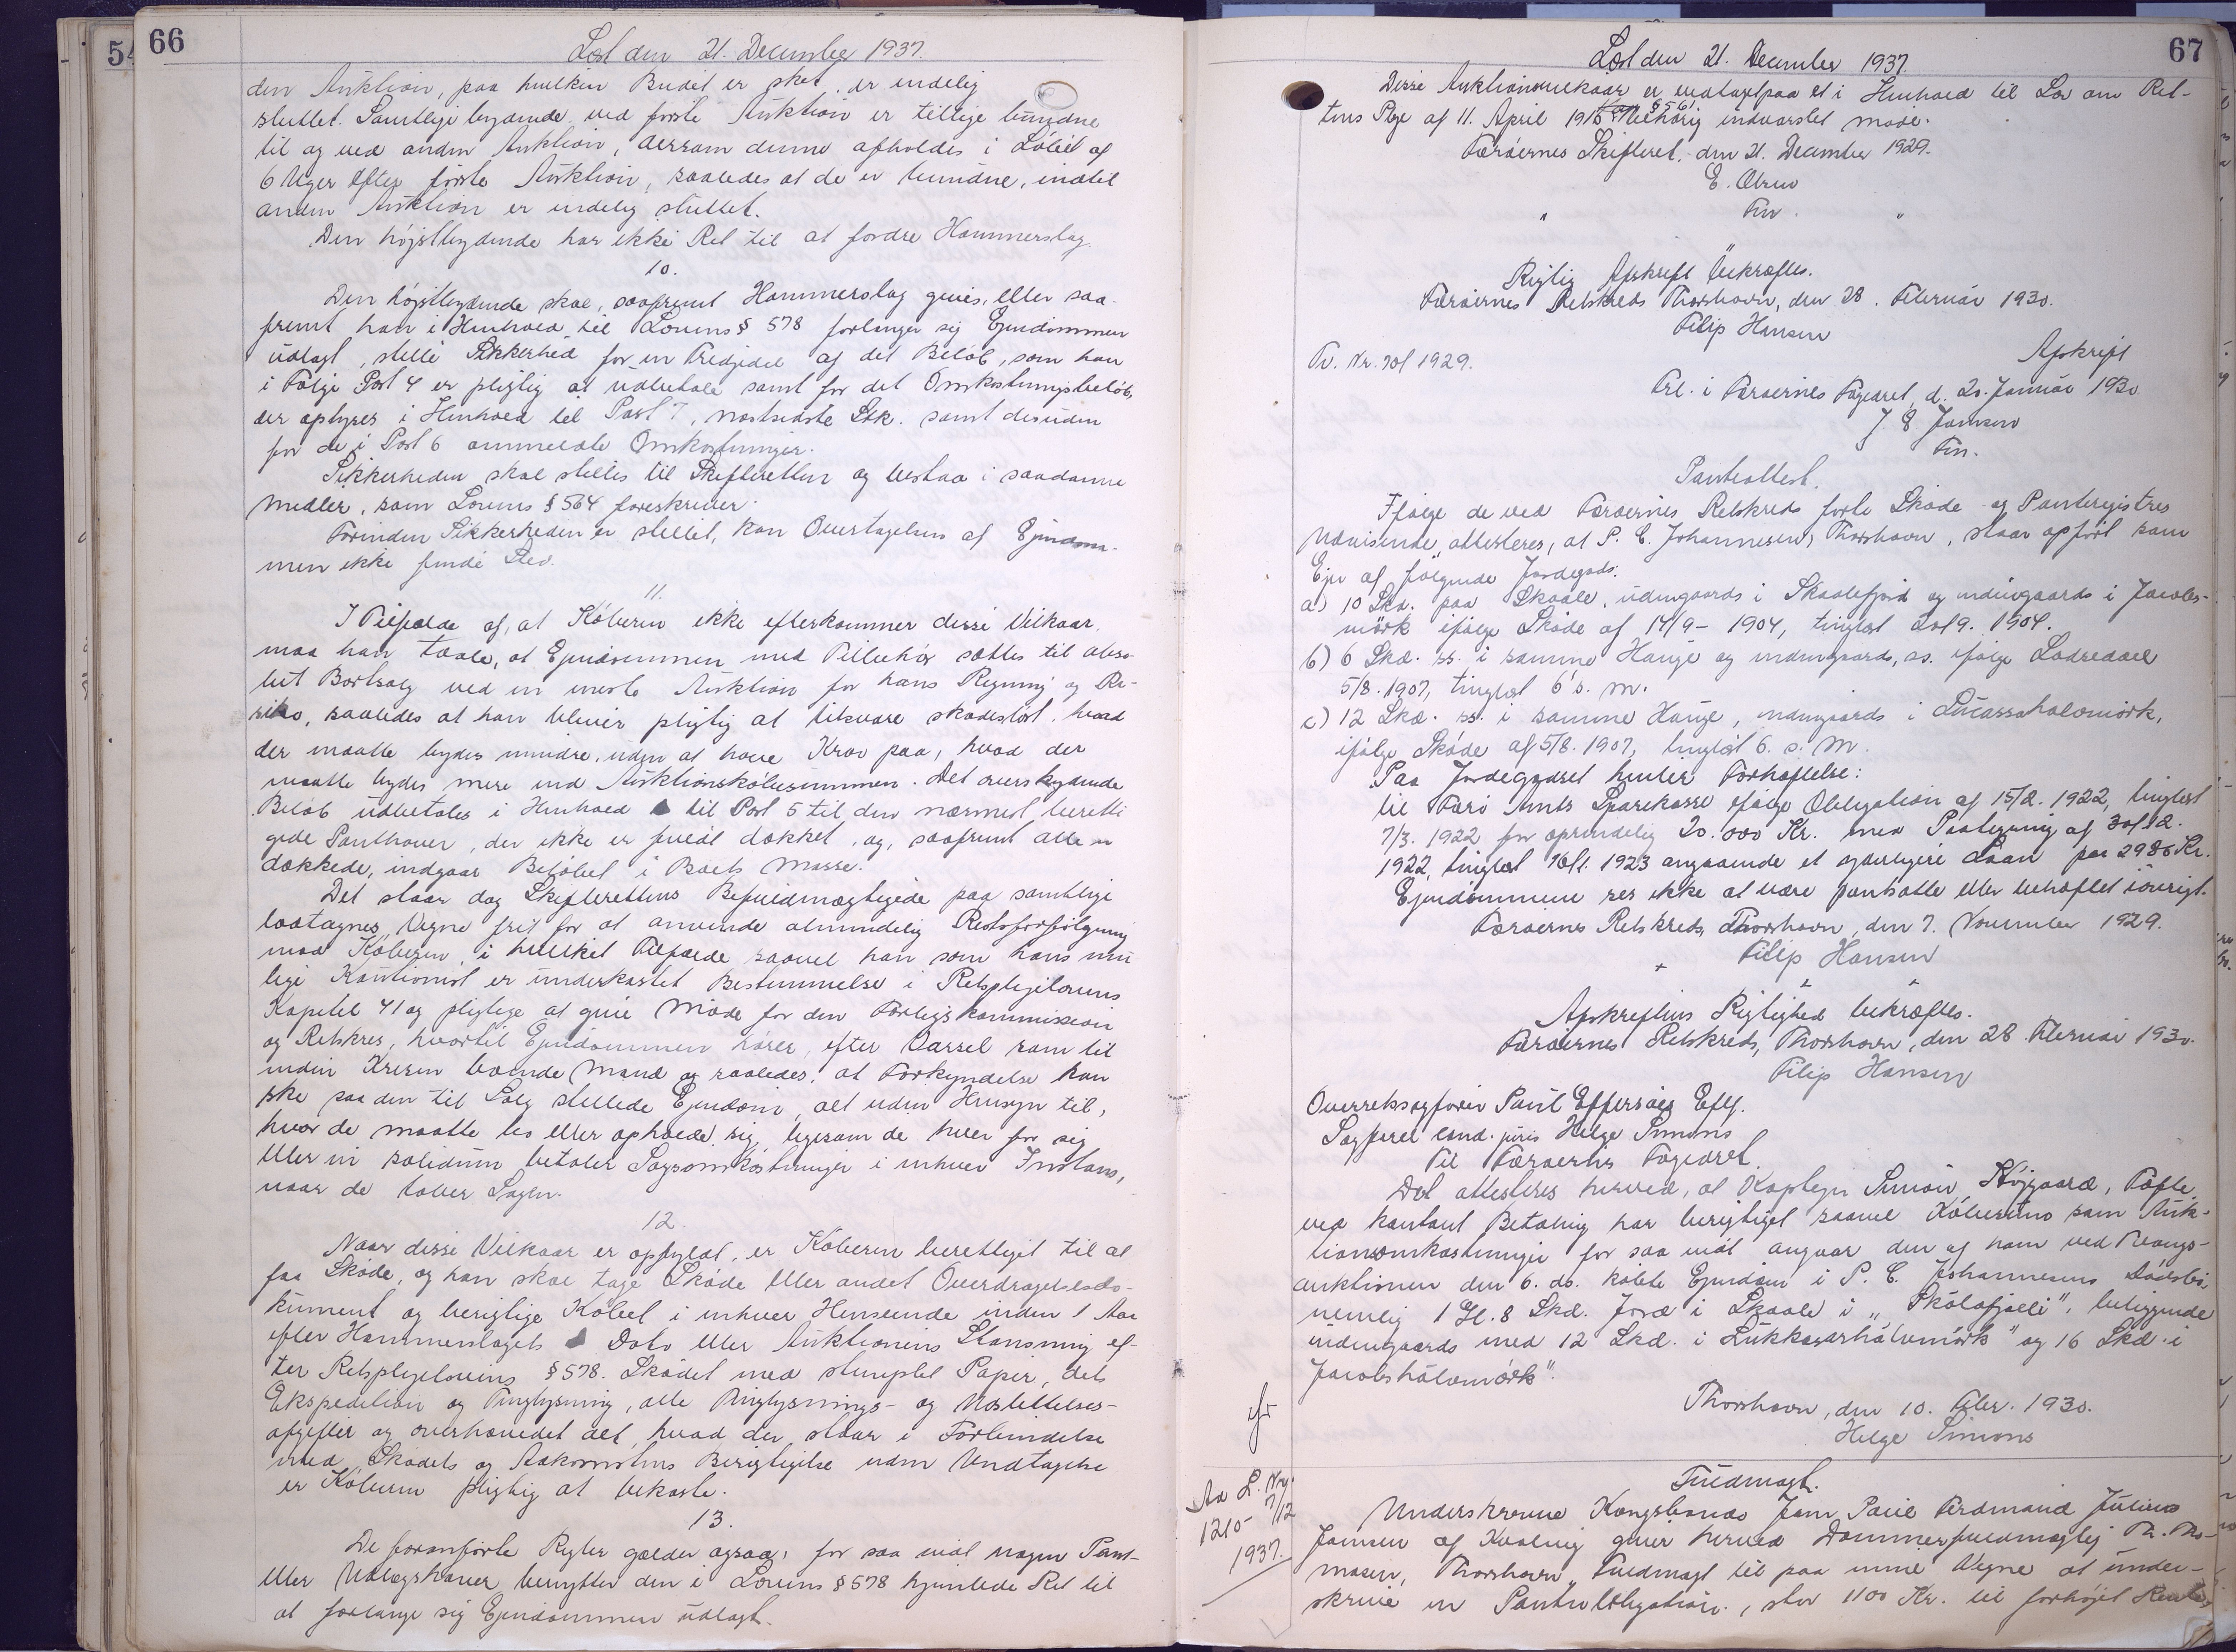 66
Læst den 21. December 1937.
den Auktion, paa hvilken Budet er sket, er endelig
sluttet. Samtlige bydende ved første Auktion er tillige bundne
til og ved anden Auktion, dersom denne afholdes i Løbet af
6 Uger efter første Auktion, saaledes at de er bundne, indtil
anden Auktion er endelig sluttet.
Den højstbydende har ikke Ret til at fordre Hammerslag.
10.
Den højstbydende skal, saafremt Hammerslag gives, eller saa-
fremt han i Henhold til Lovens § 578 forlanger sig Ejendommen
udlagt, stille Sikkerhed for en Tredjedel af det Beløb, som han
i Følge Post 4 er pligtig at udbetale samt for det Omkostningsbeløb,
der oplyses i Henhold til Post 7, næstsidste Stk. samt desuden
for de i Post 6 ommeldte Omkostninger.
Sikkerheden skal stilles til Skifteretten og bestaa i saadanne
Midler, som Lovens § 564 foreskriver.
Forinden Sikkerheden er stillet, kan Overtagelsen af Ejendom-
men ikke finde Sted.
11.
I Tilfælde af, at Køberen ikke efterkommer disse Vilkaar,
maa han taale, at Ejendommen med Tilbehør sættes til abso-
lut Bortsalg ved en eneste Auktion for hans Regning og Ri-
siko, saaledes at han bliver pligtig at tilsvare skadesløst, hvad
der maatte bydes mindre, uden at have Krav paa, hvad der
maatte bydes mere end Auktionskøbesummen. Det overskydende
Beløb udbetales i Henhold til Post 5 til den nærmest beretti
gede Panthaver, der ikke er fuldt dækket, og, saafremt alle er
dækkede, indgaar Beløbet i Boets Masse.
Det staar dog Skifterettens Befuldmægtigede paa samtlige
lodtagnes Vegne frit for at anvende almindelig Retsforfølgning
mod Køberen, i hvilket Tilfælde saavel han som hans mu
lige Kautionist er underkastet Bestemmelse i Retsplejelovens
Kapitel 41 og pligtige at give Møde for den Forligskommission
og Retskres, hvortil Ejendommen hører, efter Varsel som til
inden Kresen boende Mand og saaledes, at Forkyndelse kan
ske paa den til Salg stillede Ejendom, alt uden Hensyn til,
hvor de maatte bo eller opholde sig, ligesom de hver for sig
eller in solidum betaler Sagsomkostninger i enhver Instans,
naar de taber Sagen.
12.
Naar disse Vilkaar er opfyldt, er Køberen berettiget til at
faa Skøde, og han skal tage Skøde eller andet Overdragelsesdo-
kument og berigtige Købet i enhver Henseende inden 1 Aar
efter Hammerslagets Dato eller Auktionens Slutning ef-
ter Retsplejelovens § 578. Skødet med stemplet Papir, dets
Ekspedition og Tinglysning, alle Tinglysnings- og
afgifter og overhovedet alt, hvad der staar i Forbindelse
med Skødets og Adkomstens Berigtigelse uden Undtagelse
er Køberen pligtig at bekoste.
13.
De foranførte Regler gælder ogsaa, for saa vidt nogen Pant-
eller Udlægshaver benytter den i Lovens § 578 hjemlede Ret til
at forlange sig Ejendommen udlagt.
67
Læst den 21. December 1937.
Disse Auktionsvilkaar er vedtaget paa et i Henhold til Lov om Ret-
tens Pleje af 11. April 1916 § 561 behørig indvarslet Møde.
Færøernes Skifteret, den 21. December 1929.
E.
Fm.
Rigtig Afskrift bekræftes.
Færøernes Retskreds Thorshavn, den 28. Februar 1930.
Filip Hansen
Afskrift
Frl. i Færøernes Fogedret, d. 20. Januar 1930
J E Jansen
Fm.
Pantattest.
Ifølge de ved Færøernes Retskreds førte Skøde- og Panteregistres
Udvisende attesteres, at P. C. Johannesens, Thorshavn, staar opført som
Ejer af følgende Jordegods:
a) 10 Skd. paa Skaale, udengaards i Skaalefjord og indengaards i Jacobs-
mørk ifølge Skøde af 14/9- 1904, tinglæst 20/9. 1904.
b) 6 Skd. ss. i samme Hauge og indengaards, ss. ifølge Lodseddel
5/8. 1907, tinglæst 6 s. M.
c) 12 Skd. ss. i samme Hauge, indengaards i Lucassahalsmørk,
ifølge Skøde af 5/8. 1907, tinglæst 6. s. M.
Paa Jordegodset hviler Forhæftelse:
til Færø Amts Sparekasse ifølge Obligation af 15/2. 1922, tinglæst
7/3. 1922 for oprindelig 20.000 Kr. med Paategning af 30/12.
1922, tinglæst 16/1. 1923 angaaende et yderligere Laan paa 2986 Kr.
Ejendommene ses ikke at være pantsatte eller behæftet iøvrigt.
Færøernes Retskreds, Thorshavn, den 7. November 1929.
Filip Hansen
Afskriftens Rigtighed bekræftes.
Færøernes Retskreds, Thorshavn, den 28. Februar 1930.
Filip Hansen
Overretssagfører Poul Effersøes Eftf.
Sagfører cand. juris Helge Simons
Til Færøernes Fogedret.
Det attesteres herved, at Kaptejn Simon Højgaard, Tofte,
ved kontant Betaling har berigtiget saavel Købesum som Auk-
tionsomkostninger for saa vidt angaar den af ham ved Tvangs-
auktionen den 6. ds. købte Ejendom i P. C. Johannesens Dødsbo,
nemlig 1 Gl. 8 Skd. Jord i Skaale i "Skålafjalli", beliggende
indengaards med 12 Skd. i Lukkasarhálsmørk" og 16 Skd. i
Jacobshálsmørk".
Thorshavn, den 10. Febr. 1930.
Helge Simons
Aa L. Nr.
1210- 7/12
1937.
Fuldmagt.
Underskrevne Kongsbonde Jens Paul Ferdinand Julius
Jansen af Kvalvig giver herved Dommerfuldmægtig Th. Tho-
masen, Thorshavn, Fuldmagt til paa mine Vegne at under-
skrive en Panteobligation, stor 1100 Kr. til forhøjet Rente,